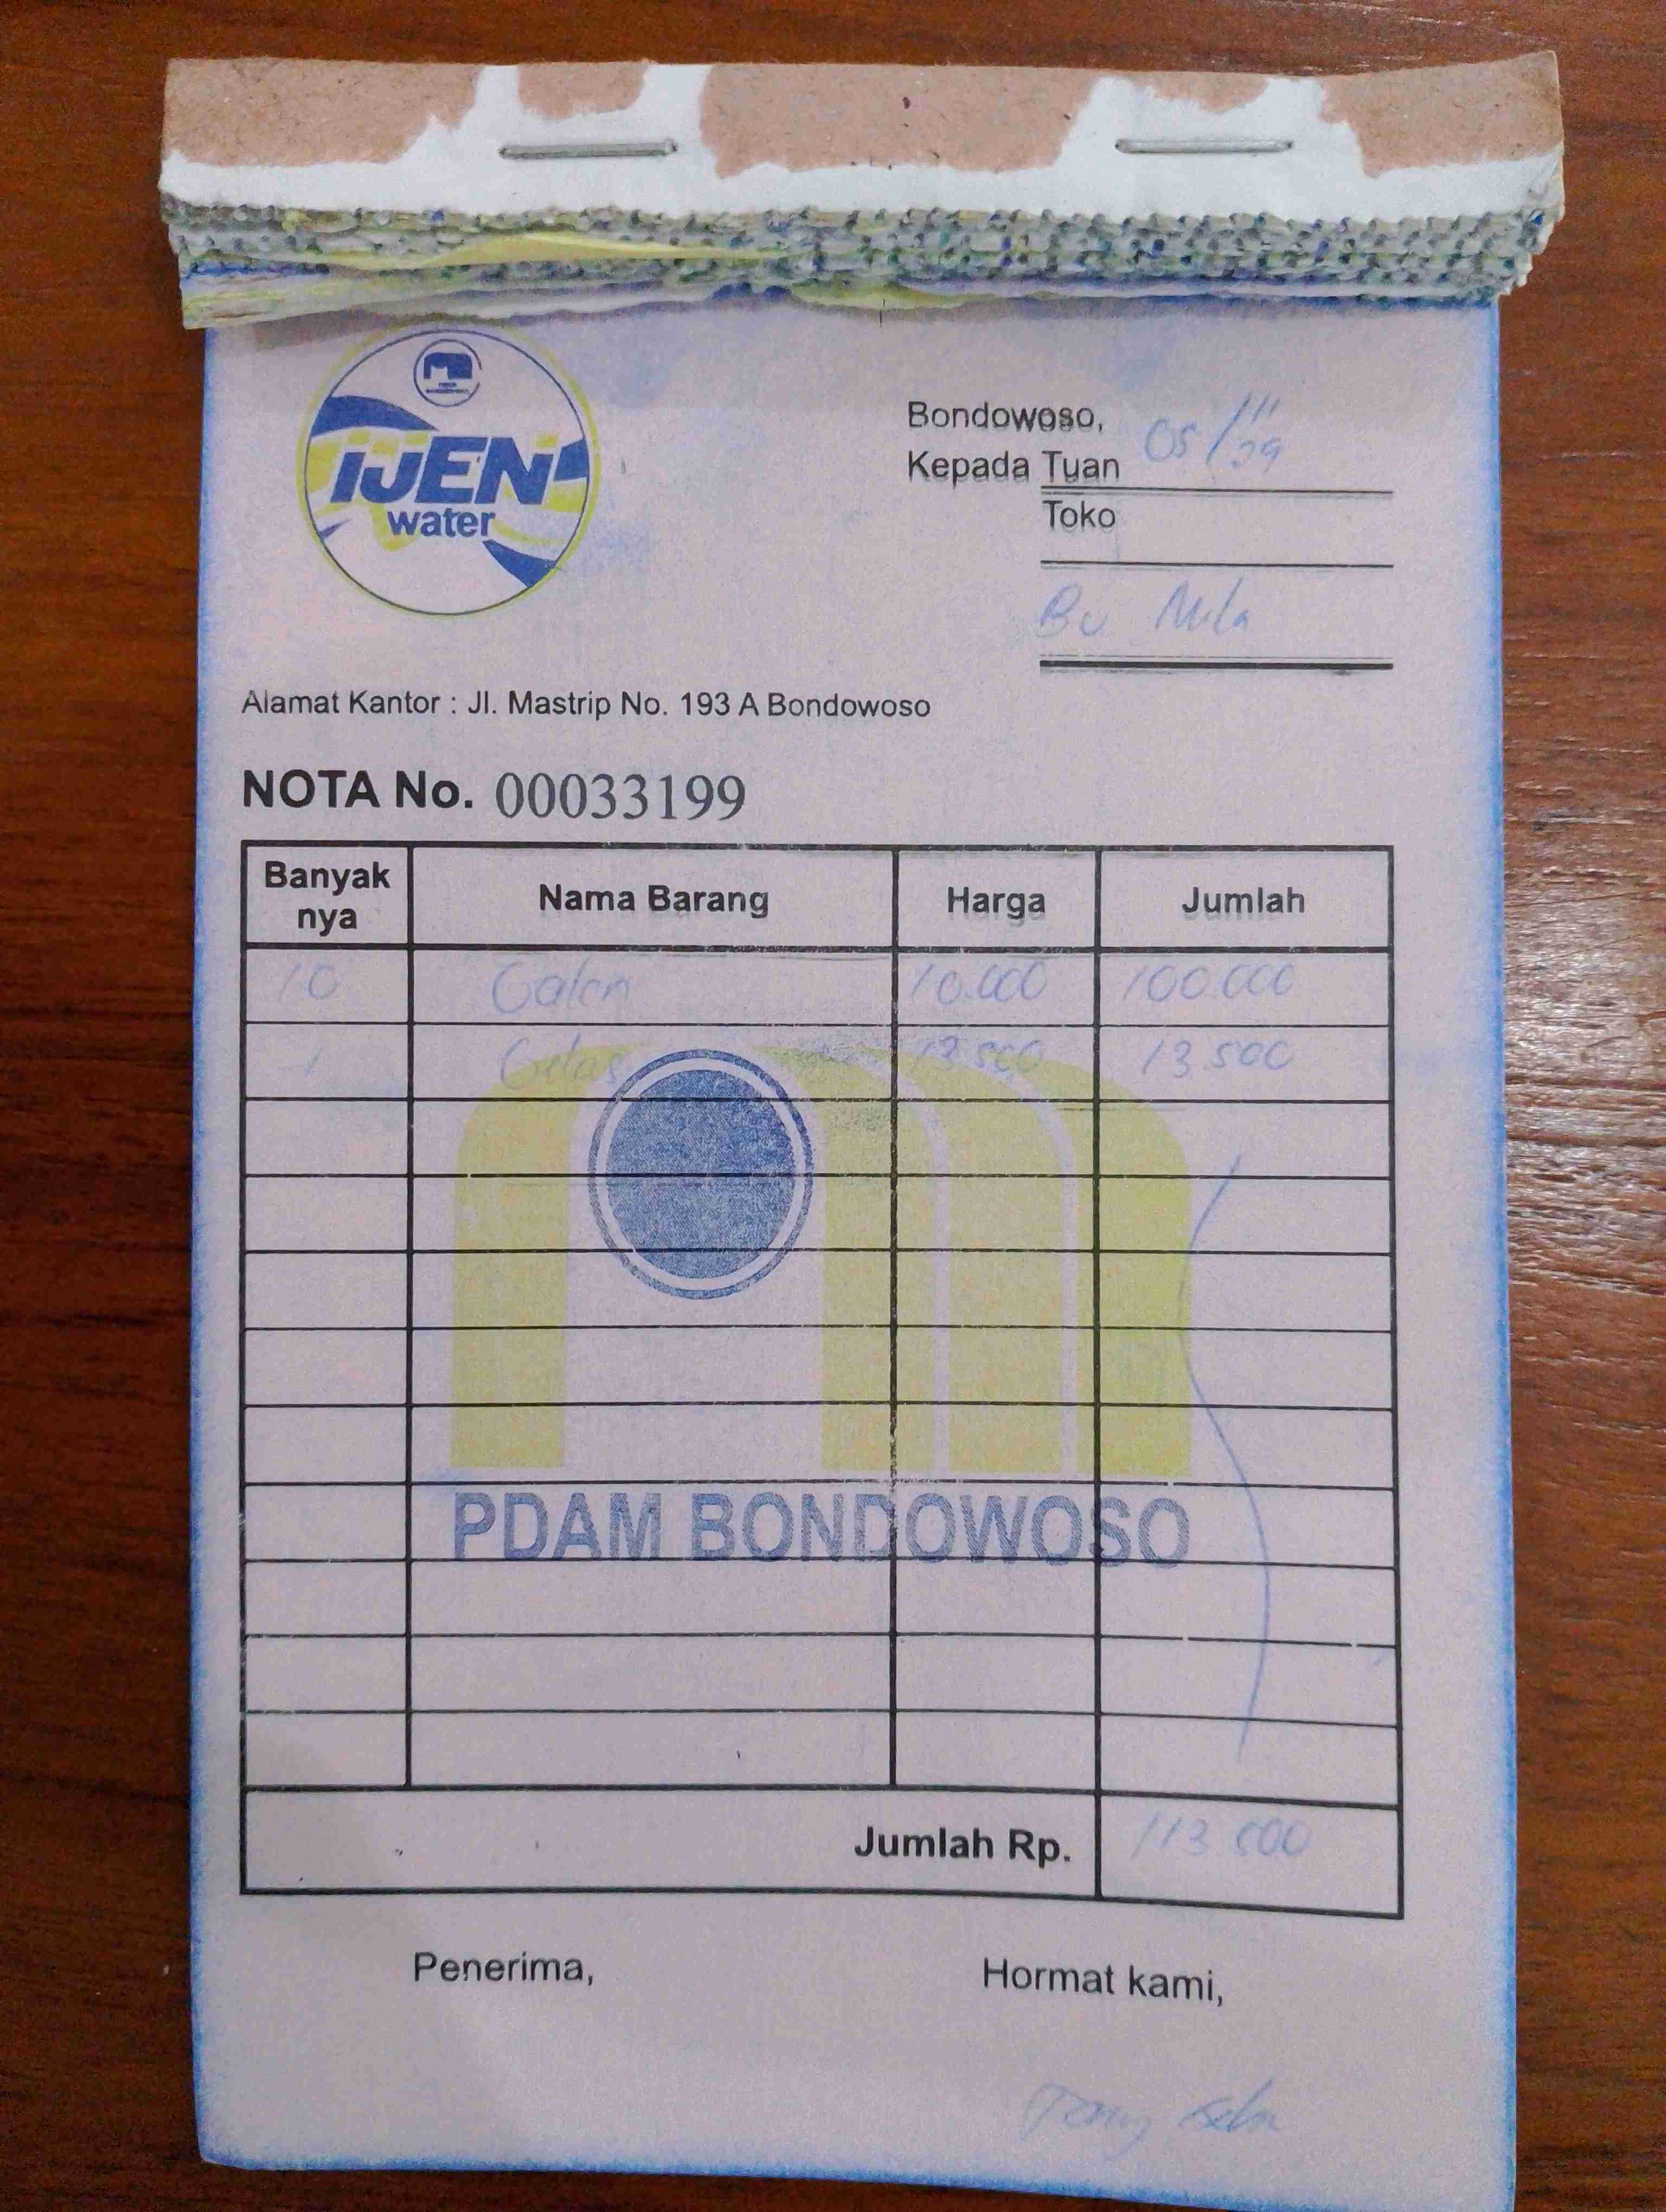 IJEN
water
Bondowoso,
Kepada Tuan
Toko
Bu Mila
Alamat Kantor : Jl. Mastrip No. 193 A Bondowoso
NOTA No. 00033199
Banyak nya Nama Barang Harga Jumlah
10 Galon 10.000 100.000
1 Gelas 13.500 13.500
PDAM BONDOWOSO
Jumlah Rp. 113.500
Penerima, Hormat kami,